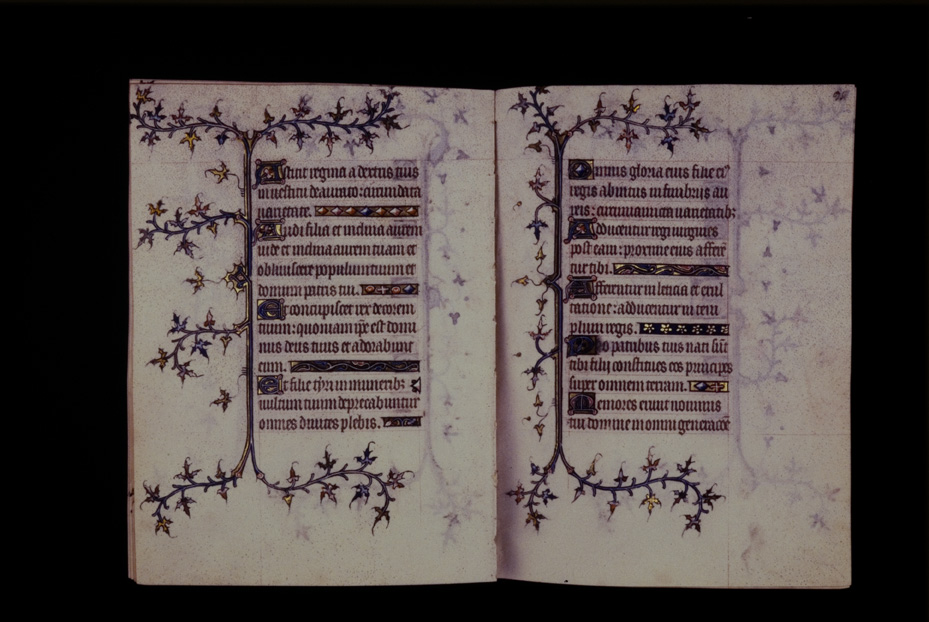 Astitit regina a dextris tuis
in vestitu deaurato: circumdata
varietate.
Audi filia et inclina aurem
vide et inclina aurem tuam et
obliviscere populum tuum et
domum patris tui.
Et concupiscet rex decorem
tuum: quoniam ipe est domi
nus deus tuus et adorabunt
eum.
Et filie tyri in muneribz
vultum tuum deprecabuntur
omnes divites plebis.
Omnis gloria eius filie et
regis ab intus in fimbrijs au
reis: circumamicta varietatibz
Adducentur regi virgines
post eam: proxime eius affere
tur tibi.
Afferentur in leticia et exul
tatione: adducentur in tem
plum regis.
Pro patribus tuis nati sut
tibi filij constitues eos principes
super omnem terram.
Memores erunt nominis
tui domine in omni generacoe